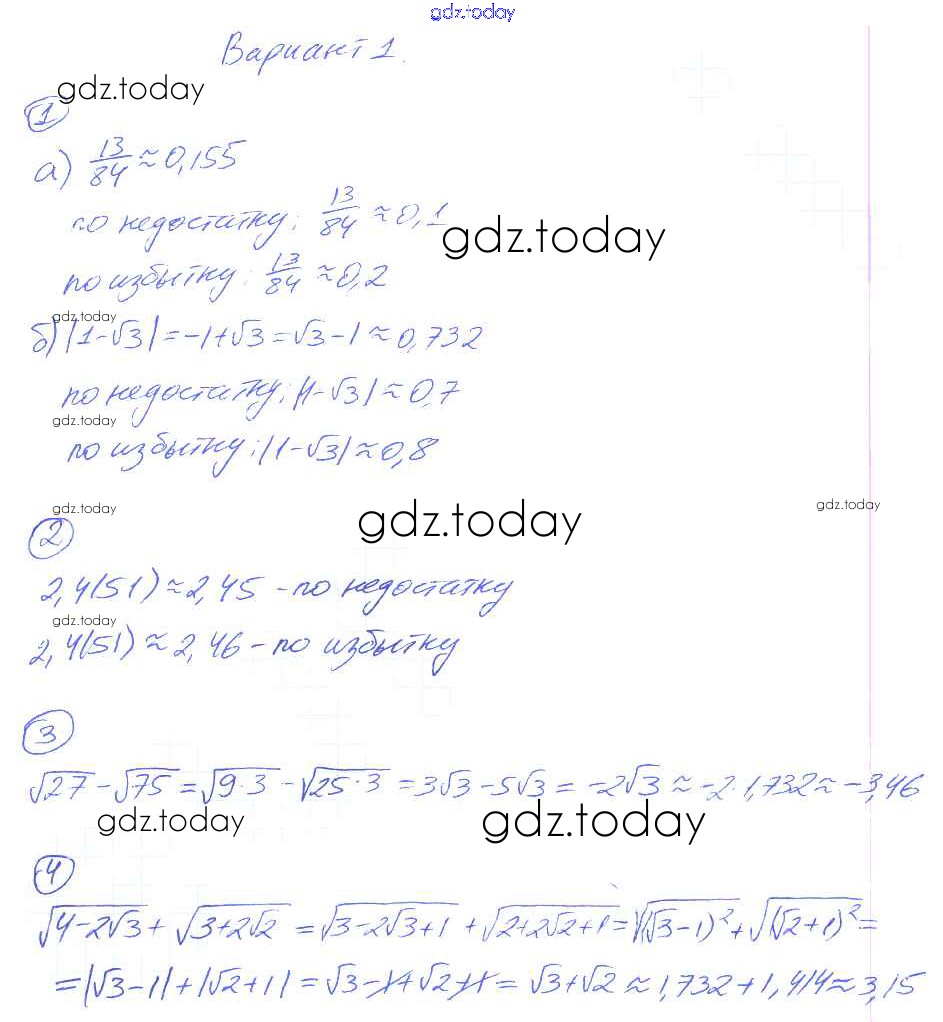 gdz.today
Вариант 1.
gdz.today
1
а) 13/84 ≈ 0,155
по недостатку: 13/84 ≈ 0,1
gdz.today
по избытку: 13/84 ≈ 0,2
gdz.today
б) |1-√3| = -1+√3 = √3-1 ≈ 0,732
по недостатку: |1-√3| ≈ 0,7
gdz.today
по избытку: |1-√3| ≈ 0,8
gdz.today
gdz.today
gdz.today
2
2,4(51) ≈ 2,45 - по недостатку
gdz.today
2,4(51) ≈ 2,46 - по избытку
3
√27 - √75 = √9·3 - √25·3 = 3√3 - 5√3 = -2√3 ≈ -2·1,732 ≈ -3,46
gdz.today
gdz.today
4
√4-2√3 + √3+2√2 = √3-2√3+1 + √2+2√2+1 = √(√3-1)² + √(√2+1)² =
= |√3-1| + |√2+1| = √3-1+√2+1 = √3+√2 ≈ 1,732+1,414 ≈ 3,15